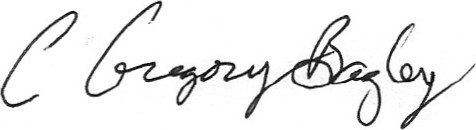 C Gregory Bagley